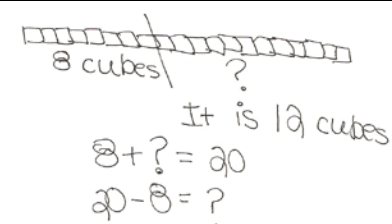 8 cubes ?
It is 12 cubes
8 + ? = 20
20 - 8 = ?